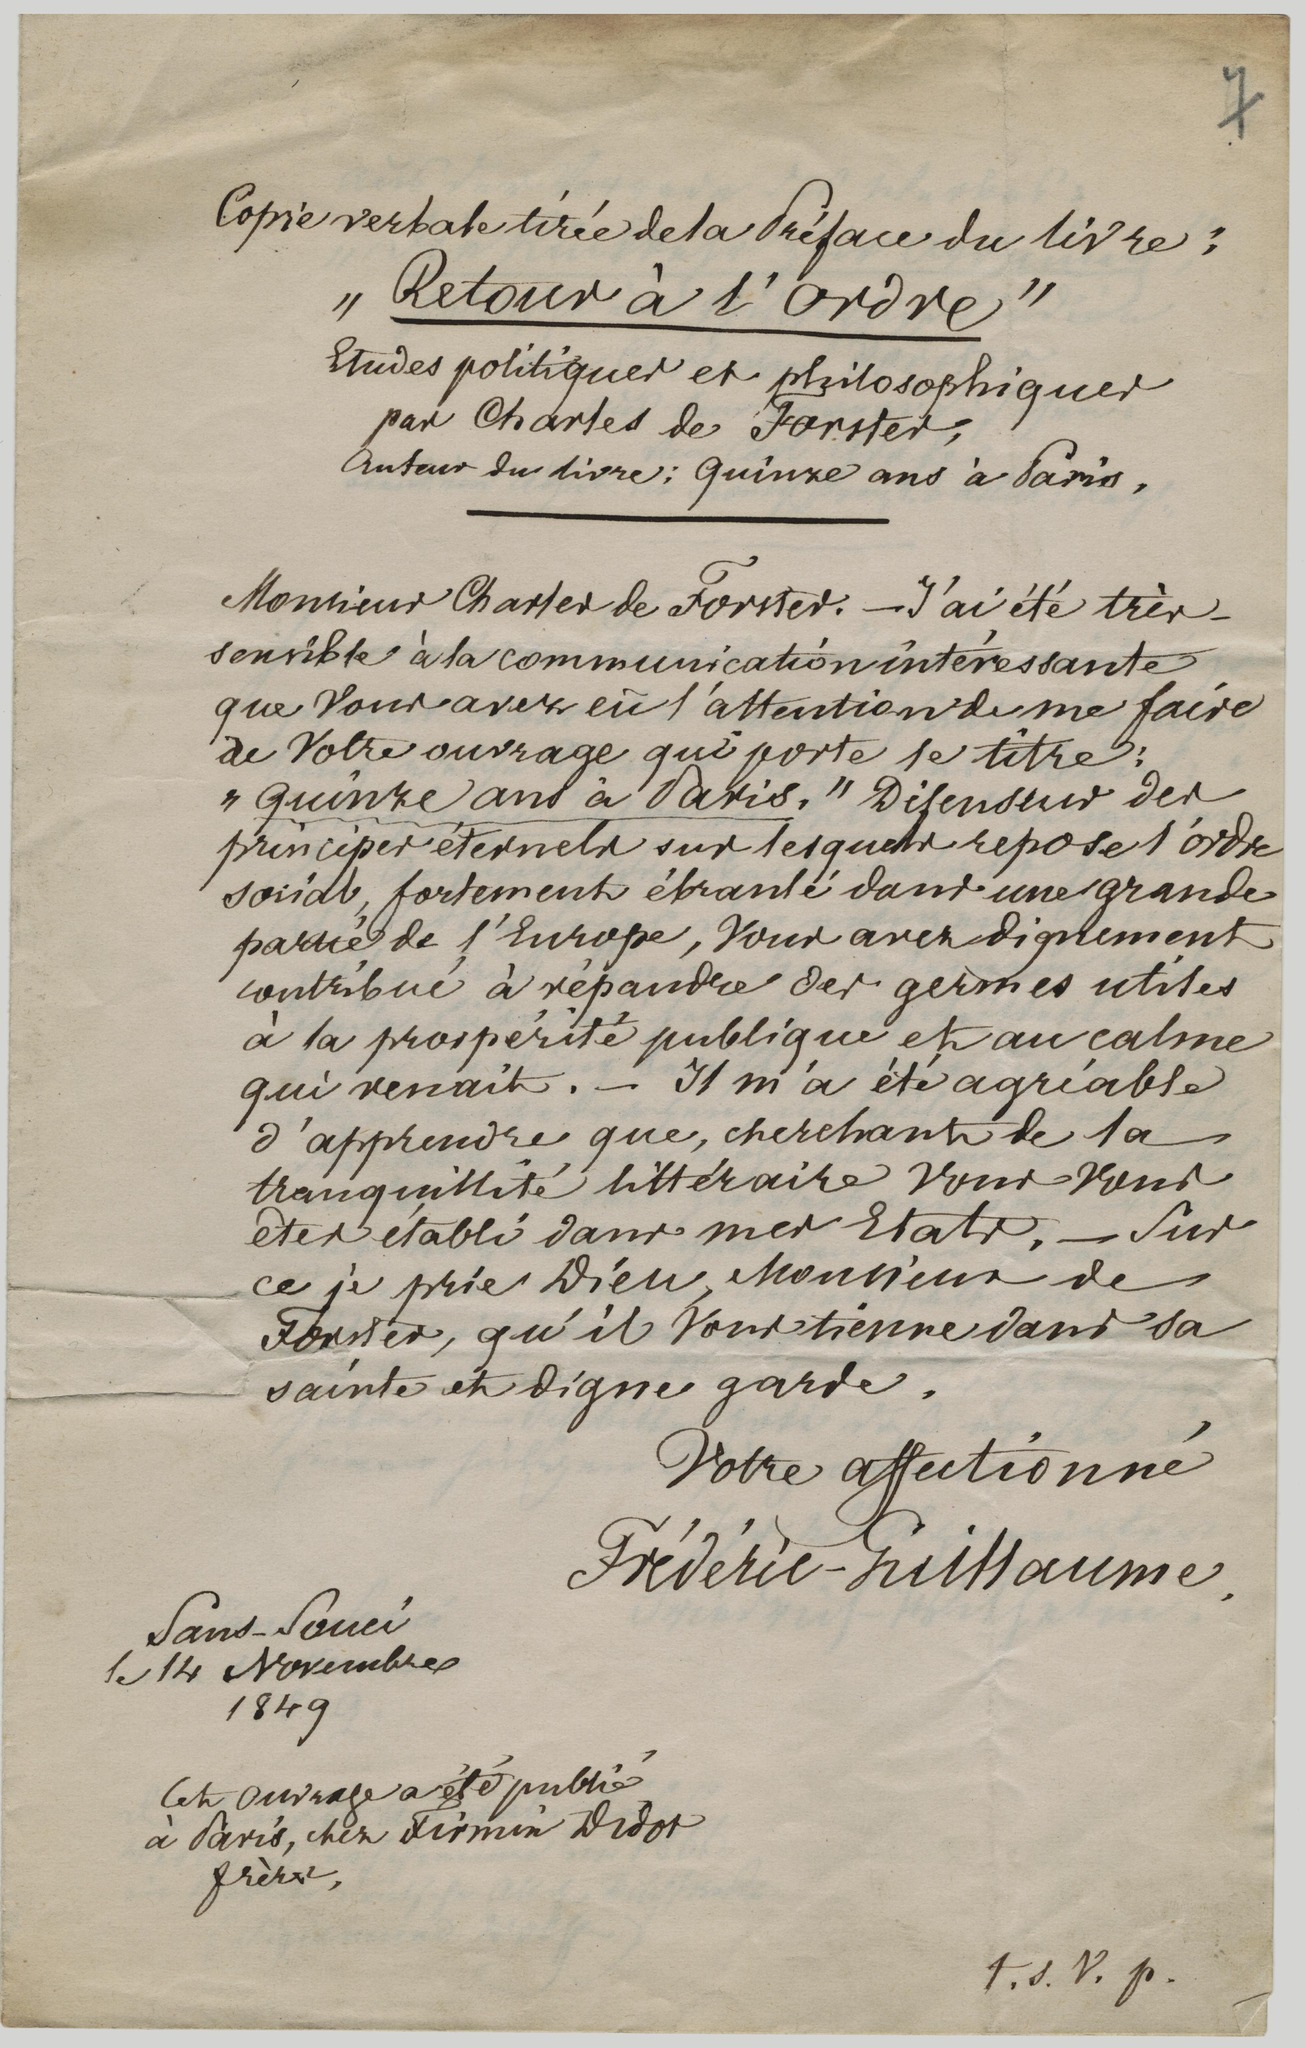 7
Copie verbale tirée de la Préface du livre:
„Retour à l'ordre"
Etudes politiques et philosophiques
par Charles de Forster,
Auteur du livre: Quinze ans à Paris.
Monsieur Charles de Forster. — J'ai été très-
sensible à la communication intéressante
que Vous avez eû l'attention de me faire
de Votre ouvrage qui porte le titre:
„Quinze ans à Paris." Difenseur des
principes éternels sur lesquels repose l'ordre
social, fortement ébranlé dans une grande
partie de l'Europe, Vous avez dignement
contribué à répandre des germes utiles
à la prospérité publique et au calme
qui renait. — Il m'a été agréable
d'apprendre que, cherchant de la
tranquillité littéraire Vous Vous
êtes établi dans mes Etats. — Sur
ce je prie Dieu, Monsieur de
Forster, qu'il Vous tienne dans sa
sainte et digne garde.
Votre affectionné
Frédéric-Guillaume.
Sans-Souci
le 14 Novembre
1849
Cet ouvrage a été publié
à Paris, chez Firmin Didot
frères,
t. s. V. p.